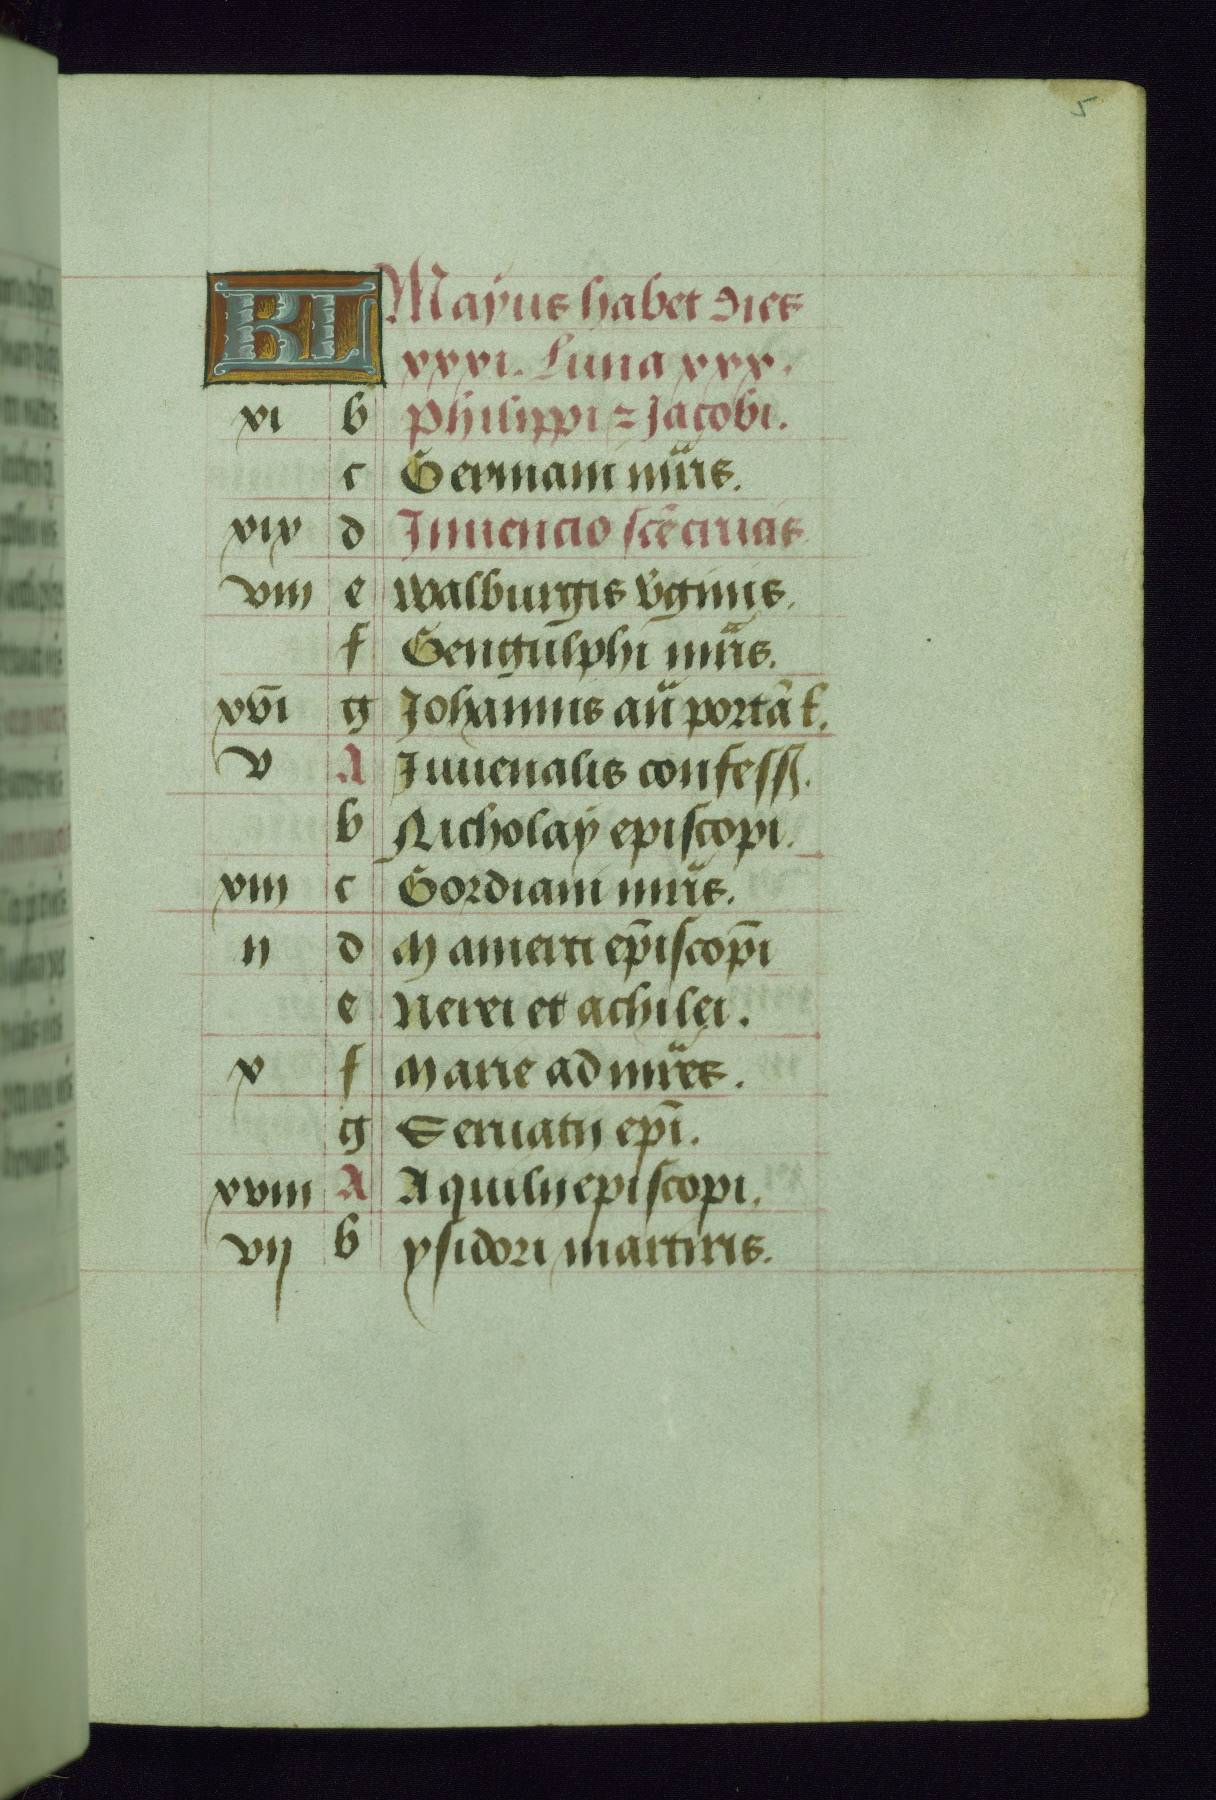 5
KL Mayus habet dies
xxxi. Luna xxx.
xi b Philippi ⁊ Jacobi.
c Germani mr̃is.
xix d Inuencio sc̃e crucis
viii e Walburgis v̾ginis.
f Gengulphi mr̃is.
xvi g Johannis an̄ portā l.
v A Iuuenalis confess.
b Nicholay episcopi.
xiii c Gordiani mr̃is.
ii d Mamerti ep̄iscop̄i
e Nerei et achilei.
x f Marie ad mr̃es.
g Seruatij ep̄i.
xviii A Aquilij episcopi.
vij b ysidori martiris.